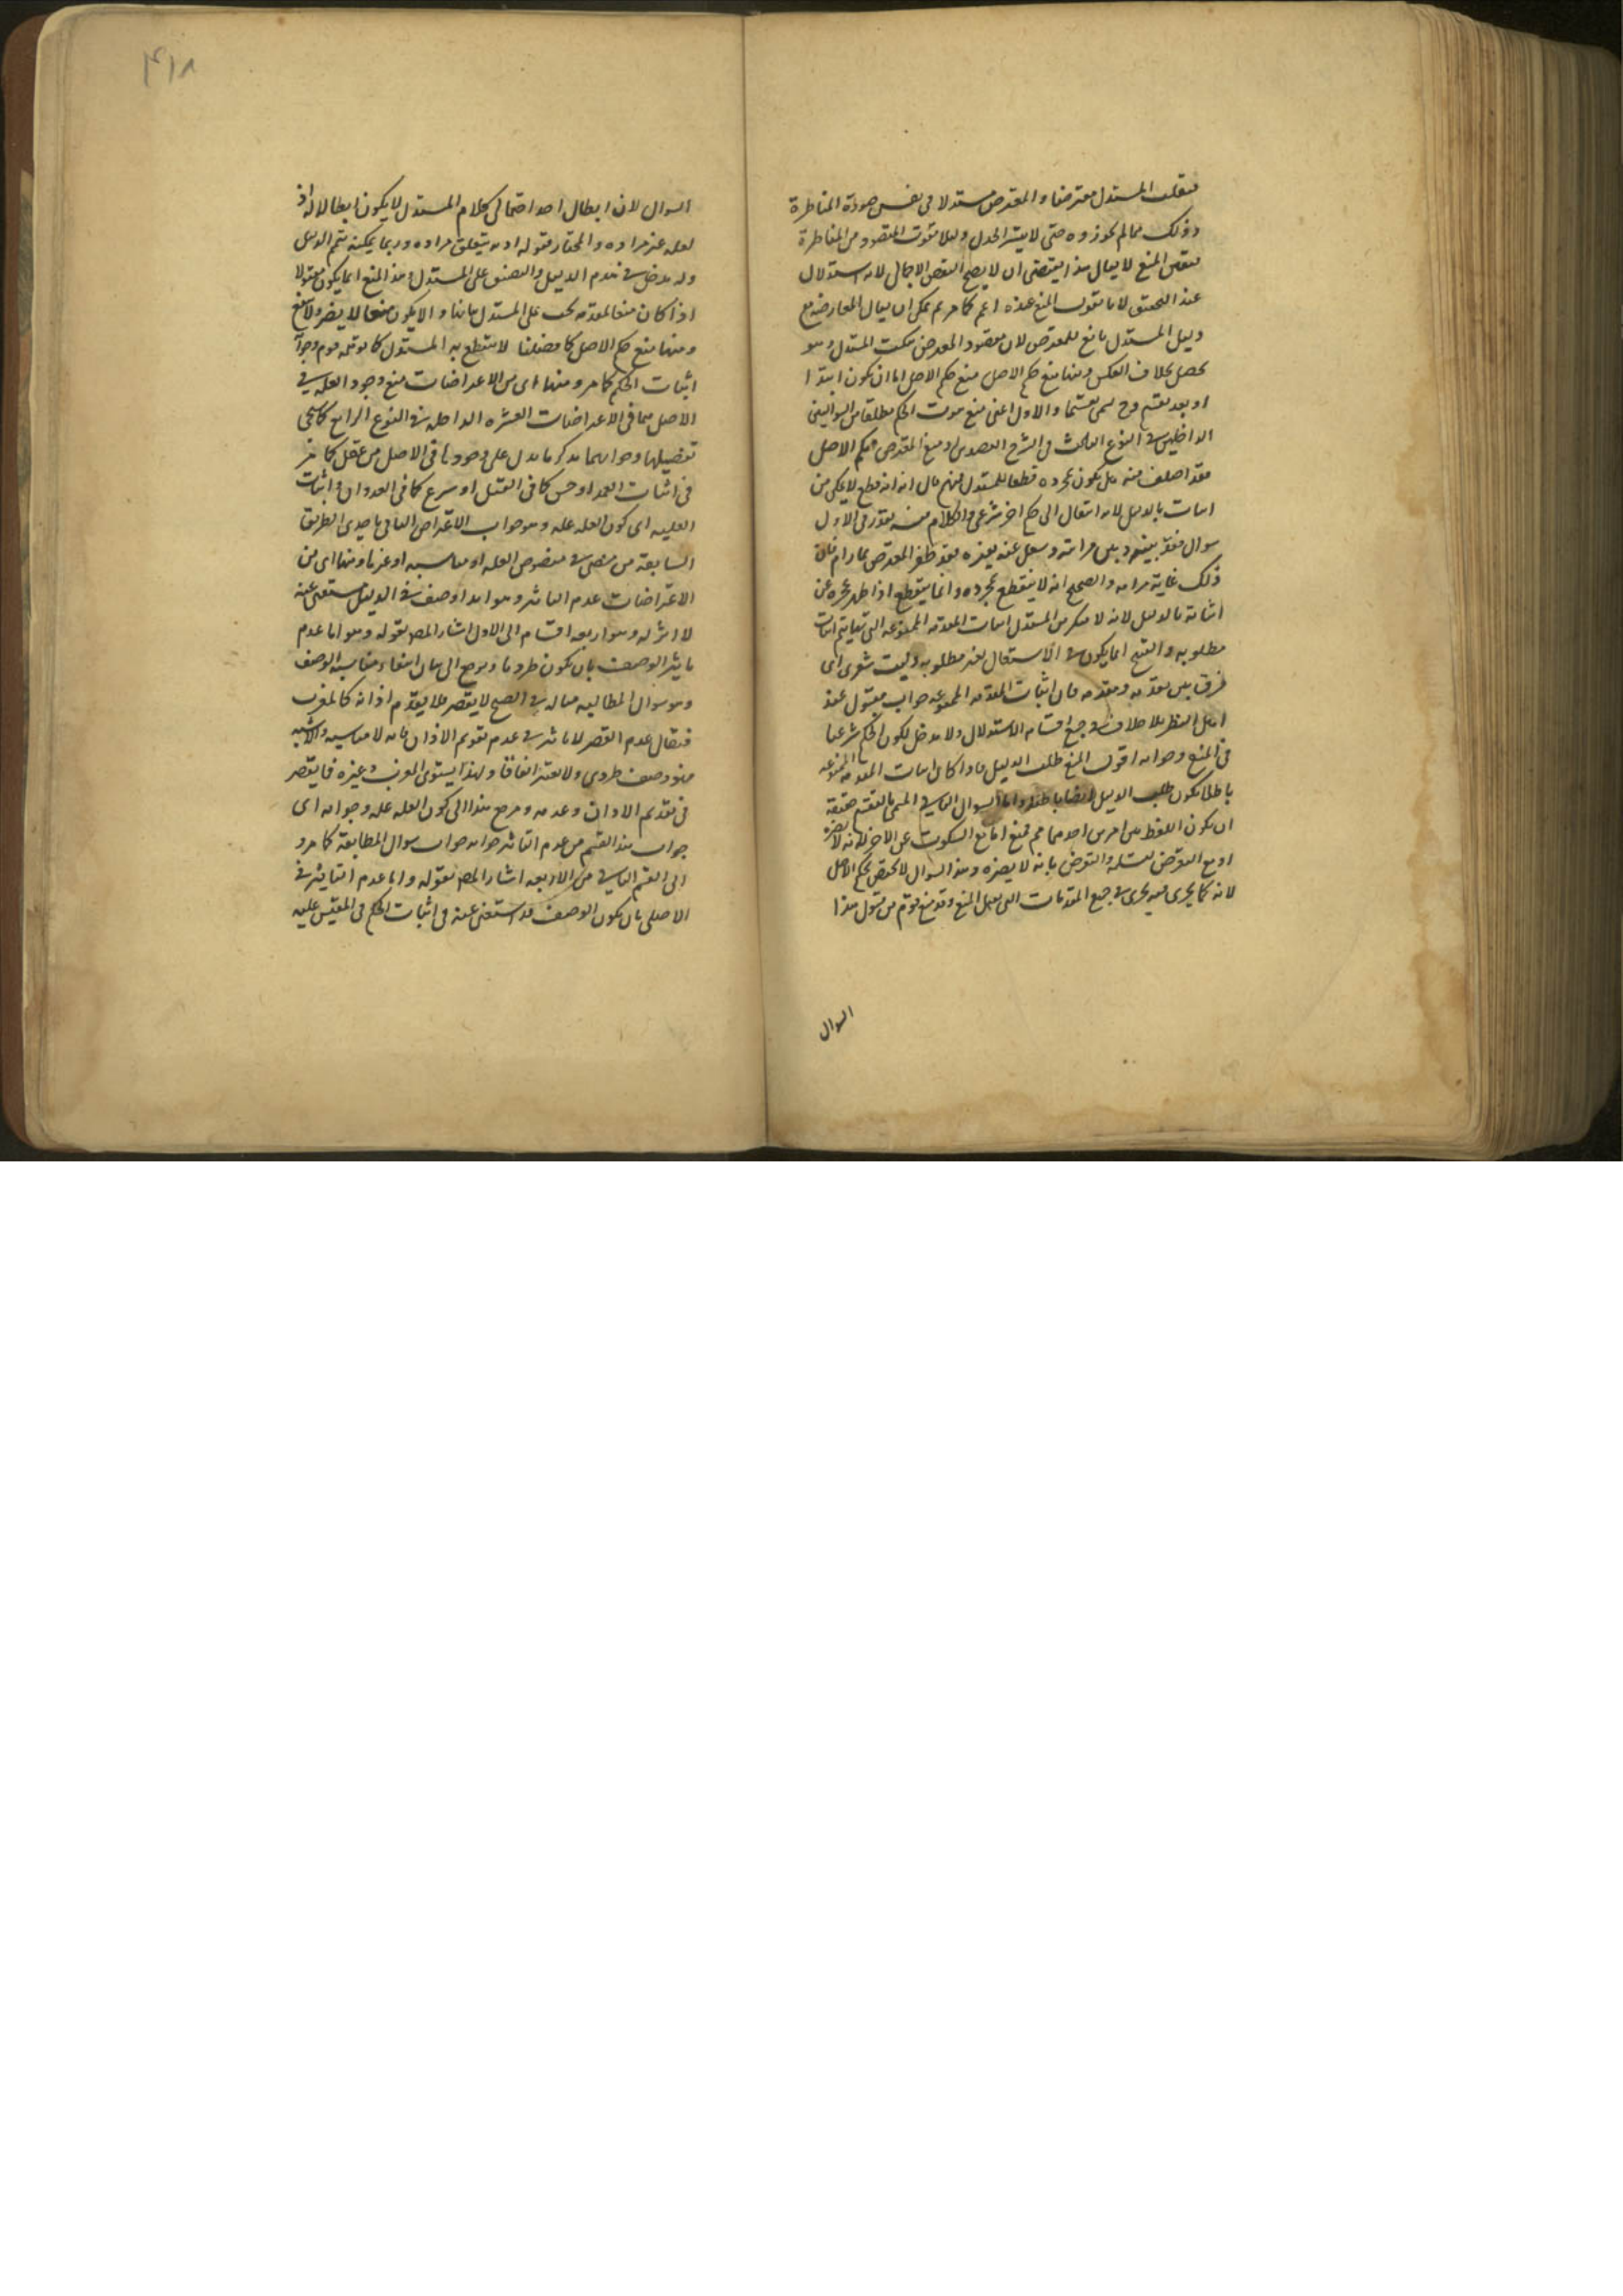 فينقلب المستدل معترضا والمعترض مستدلا في نفس صورة المناظرة
وذلك مما لم يجوزوه حتى لا ينتشر الجدل ولئلا يفوت المقصود من المناظرة
المنع لا يقال هذا يقتضي ان لا يصح النقض الاجمالي لانه استدلال
عند التحقيق لانا نقول المنع عنده اعم كما مر ثم يمكن ان يقال المعارضة مع
دليل المستدل نافع للمعترض لان مقصود المعترض سكت المستدل وهو
يحصل بخلاف العكس ومنها منع حكم الاصل منع حكم الاصل اما ان يكون ابتداء
او بعد تقسيم وح يسمى تقسيما والاول اعني منع ثبوت الحكم مطلقا من السوالين
الداخلين في النوع الثالث في الشرح العضدي اذ منع المعترض حكم الاصل
فقد اختلف فيه هل يكون بمجرده قطعا للمستدل فمنهم من قال انه قطع لا يمكن من
اثباته بالدليل لانه انتقال الى حكم اخر شرعي والكلام فيه بقدر في الاول
سوال فقد بينه وبين مراته وشغل عنه بغيره فقد ظفر المعترض بما رام فان
ذلك غاية مرامه والصحيح انه لا ينقطع بمجرده وانما ينقطع اذا ظهر عجزه عن
اثباته بالدليل لانه لا ينكر من المستدل اثبات المقدمة الممنوعة التي بها يتم اثبات
مطلوبه والقبح انما يكون في الاشتغال بغير مطلوبه وليت شعري اي
فرق بين مقدمة ومقدمة فان اثبات المقدمة الممنوعة جواب مقبول عند
اهل النظر بلا خلاف في جميع اقسام الاستدلال ولا مدخل لكون الحكم شرعيا
في المنع وجوابه اقول المنع طلب الدليل فاذا كان اثبات المقدمة الممنوعة
باطلا يكون طلب الدليل ايضا باطلا واما السوال الثاني المسمى بالتقسيم حقيقة
ان يكون اللفظ بين امرين احدهما مم فيمنع اما مع السكوت عن الاخر لانه لا يضره
او مع التعرض لتسليمه والتعرض بانه لا يضره وهذا السوال لا يختص بحكم الاصل
لانه كما يجري فيه يجري في جميع المقدمات التي تقبل المنع وقد منع قوم من قبول هذا
السوال
٤١٨
السوال لان ابطال احد احتمالي كلام المستدل لا يكون ابطالا له اذ
لعله غير مراده والمختار قبوله اذ به يتعلق مراده وربما يمكنه تتميم الدليل
وله مدخل في هدم الدليل والتضييق على المستدل وهذا المنع انما يكون مقبولا
اذا كان منعا لمقدمة يجب على المستدل بيانها والا يكون منعا لا يضر ولا ينفع
ومنها منع حكم الاصل كما فصلنا لا ينقطع به المستدل كما توهمه قوم وجوابه
اثبات الحكم كما مر ومنها اي من الاعتراضات منع وجود العلة في
الاصل مما في الاعتراضات العشرة الداخلة في النوع الرابع كما سيجي
تفصيلها وجوابهما يذكر ما يدل على وجودها في الاصل من عقل كما مر
في اثبات العمد او حس كما في القتل او شرع كما في العدوان واثبات
العلية اي كون العلة علة وهو جواب الاعتراض الثاني باحدى الطرق
السابقة من منصوص العلة او مناسبة او غيرها ومنها اي من
الاعتراضات عدم التاثير وهو ابداء وصف في الدليل مستغنى عنه
لا اثر له وهو اربعة اقسام الى الاول اشار المص بقوله وهو اما عدم
تاثير الوصف بان يكون طرديا ويرجع الى بيان انتفاء مناسبة الوصف
وهو سوال المطالبة مثاله في الصبح لا يقصر فلا يقدم اذانه كالمغرب
فيقال عدم القصر لا تاثير في عدم تقديم الاذان فانه لا مناسبة والاشبه
فهو وصف طردي ولا يعتبر اتفاقا ولهذا يستوي المغرب وغيره فيما يقصر
في تقديم الاذان وعدمه ومرجع هذا الى كون العلة علة وجوابه اي
جواب هذا القسم من عدم التاثير جوابه جواب سوال المطالبة كما مر و
الى القسم الثاني من الاربعة اشار المص بقوله واما عدم التاثير في
الاصل بان يكون الوصف قد استغنى عنه في اثبات الحكم في المقيس عليه